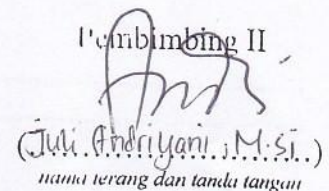 Pembimbing II
(Juli Andriyani, M.Si)
nama terang dan tanda tangan